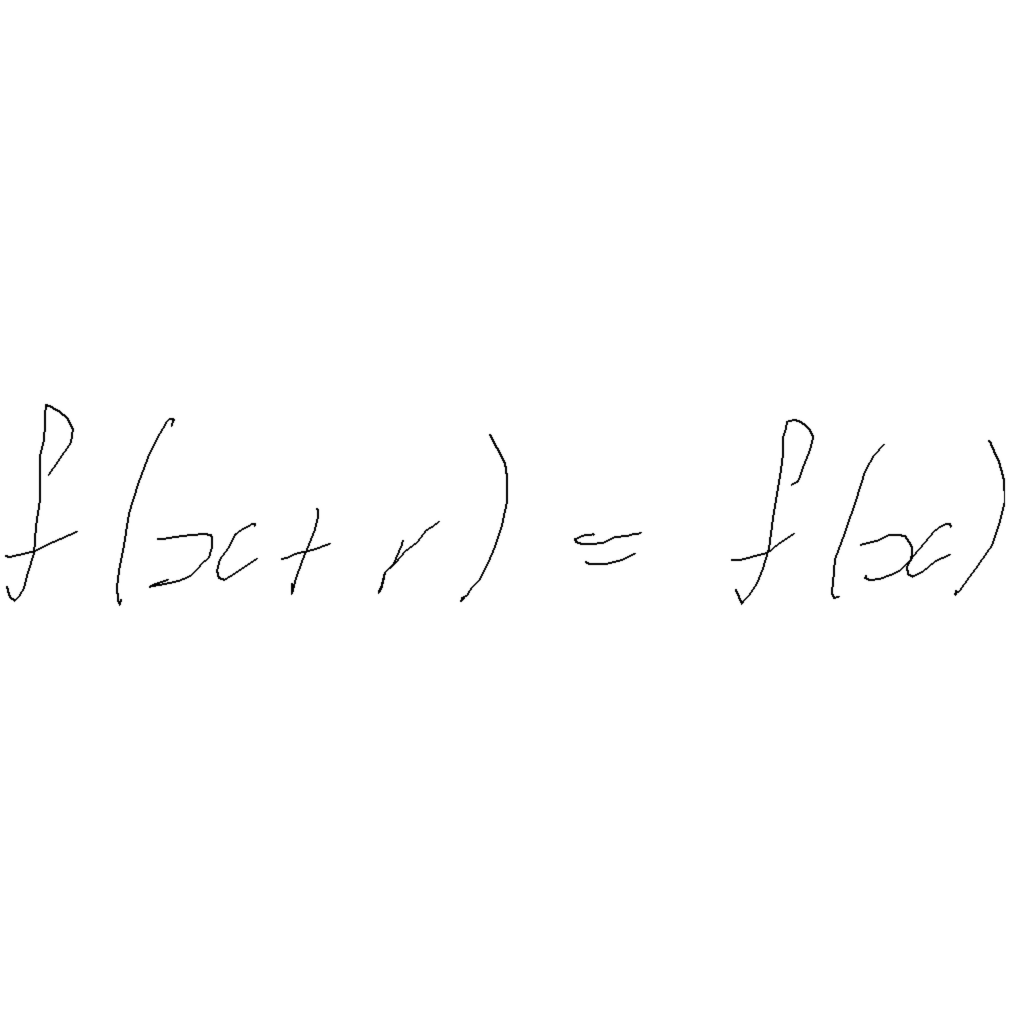 f(x+r) = f(x)